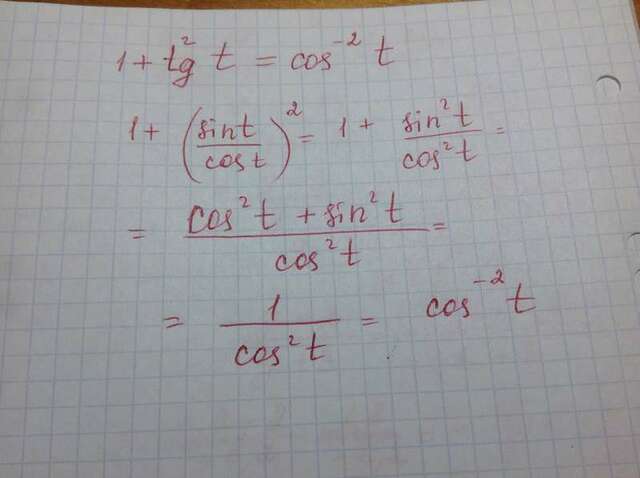 1 + tg² t = cos⁻² t
1 + (sin t / cos t)² = 1 + sin² t / cos² t =
= (cos² t + sin² t) / cos² t =
= 1 / cos² t = cos⁻² t